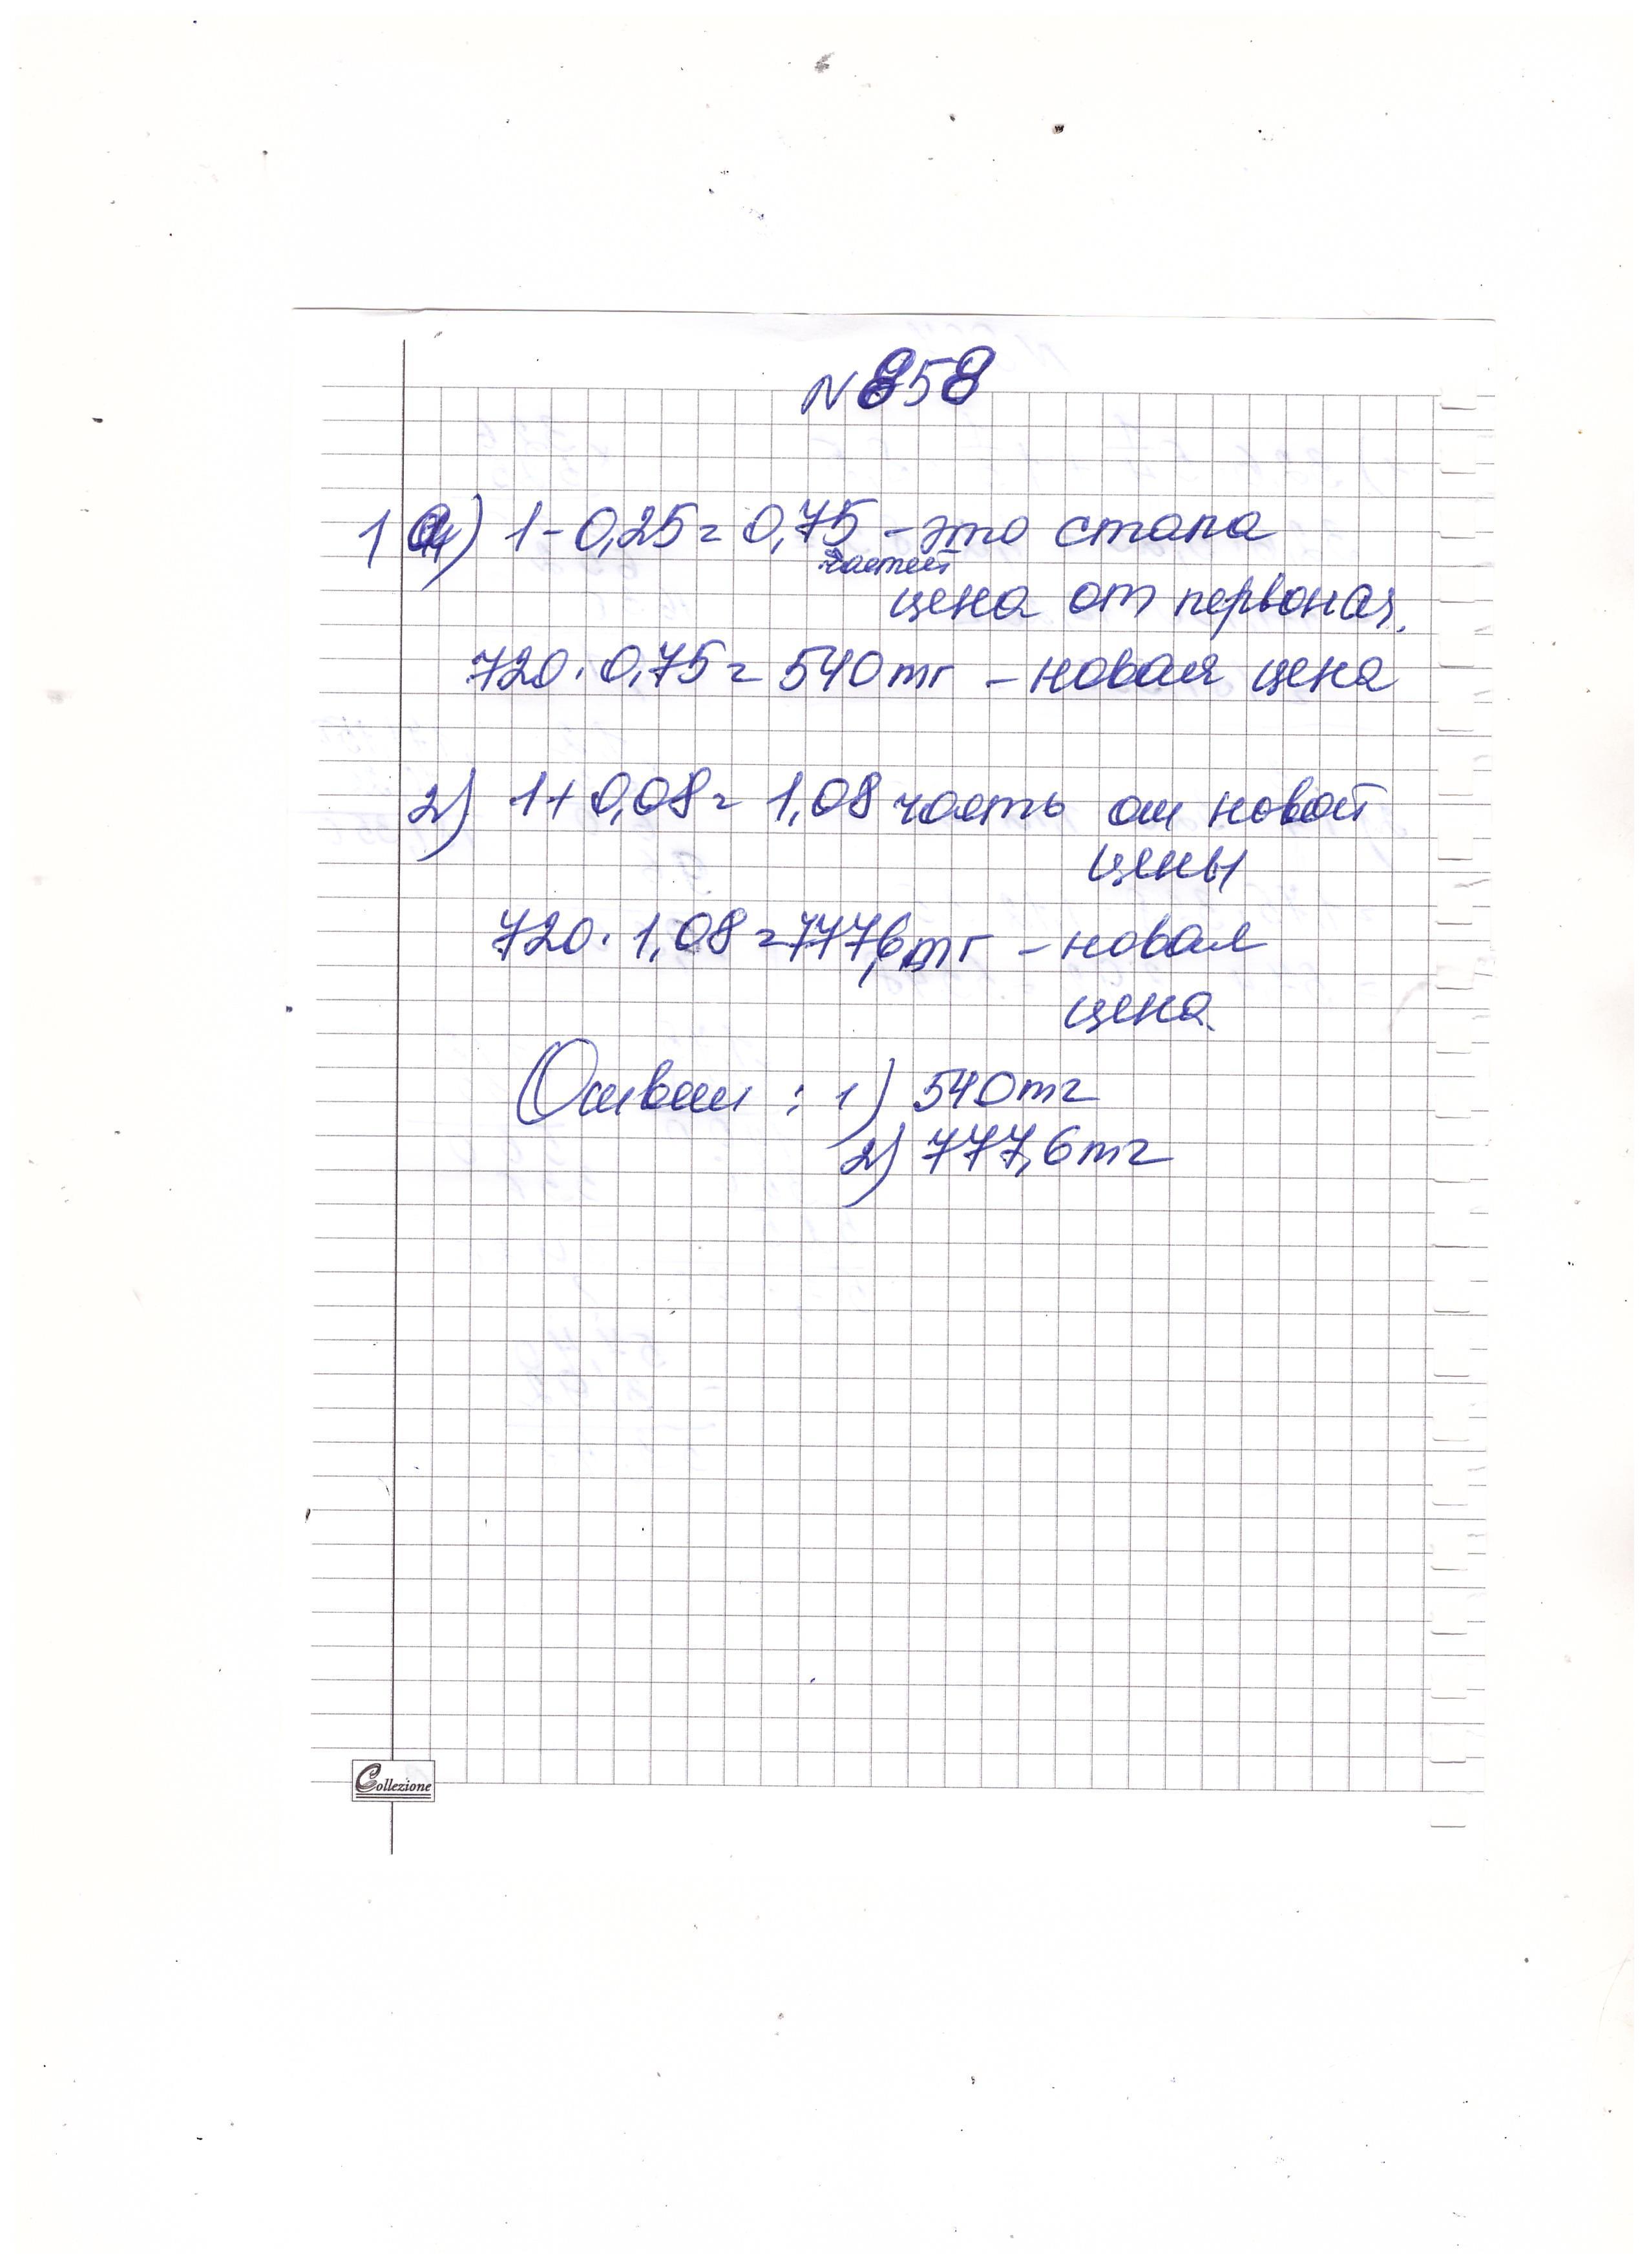 N 858
1) 1 - 0,25 = 0,75 - это стала
частей
цена от первонач.
720 · 0,75 = 540 тг - новая цена
2) 1 + 0,08 = 1,08 часть от новой
цены
720 · 1,08 = 777,6 тг - новая
цена.
Ответ : 1) 540 тг
2) 777,6 тг
Collezione